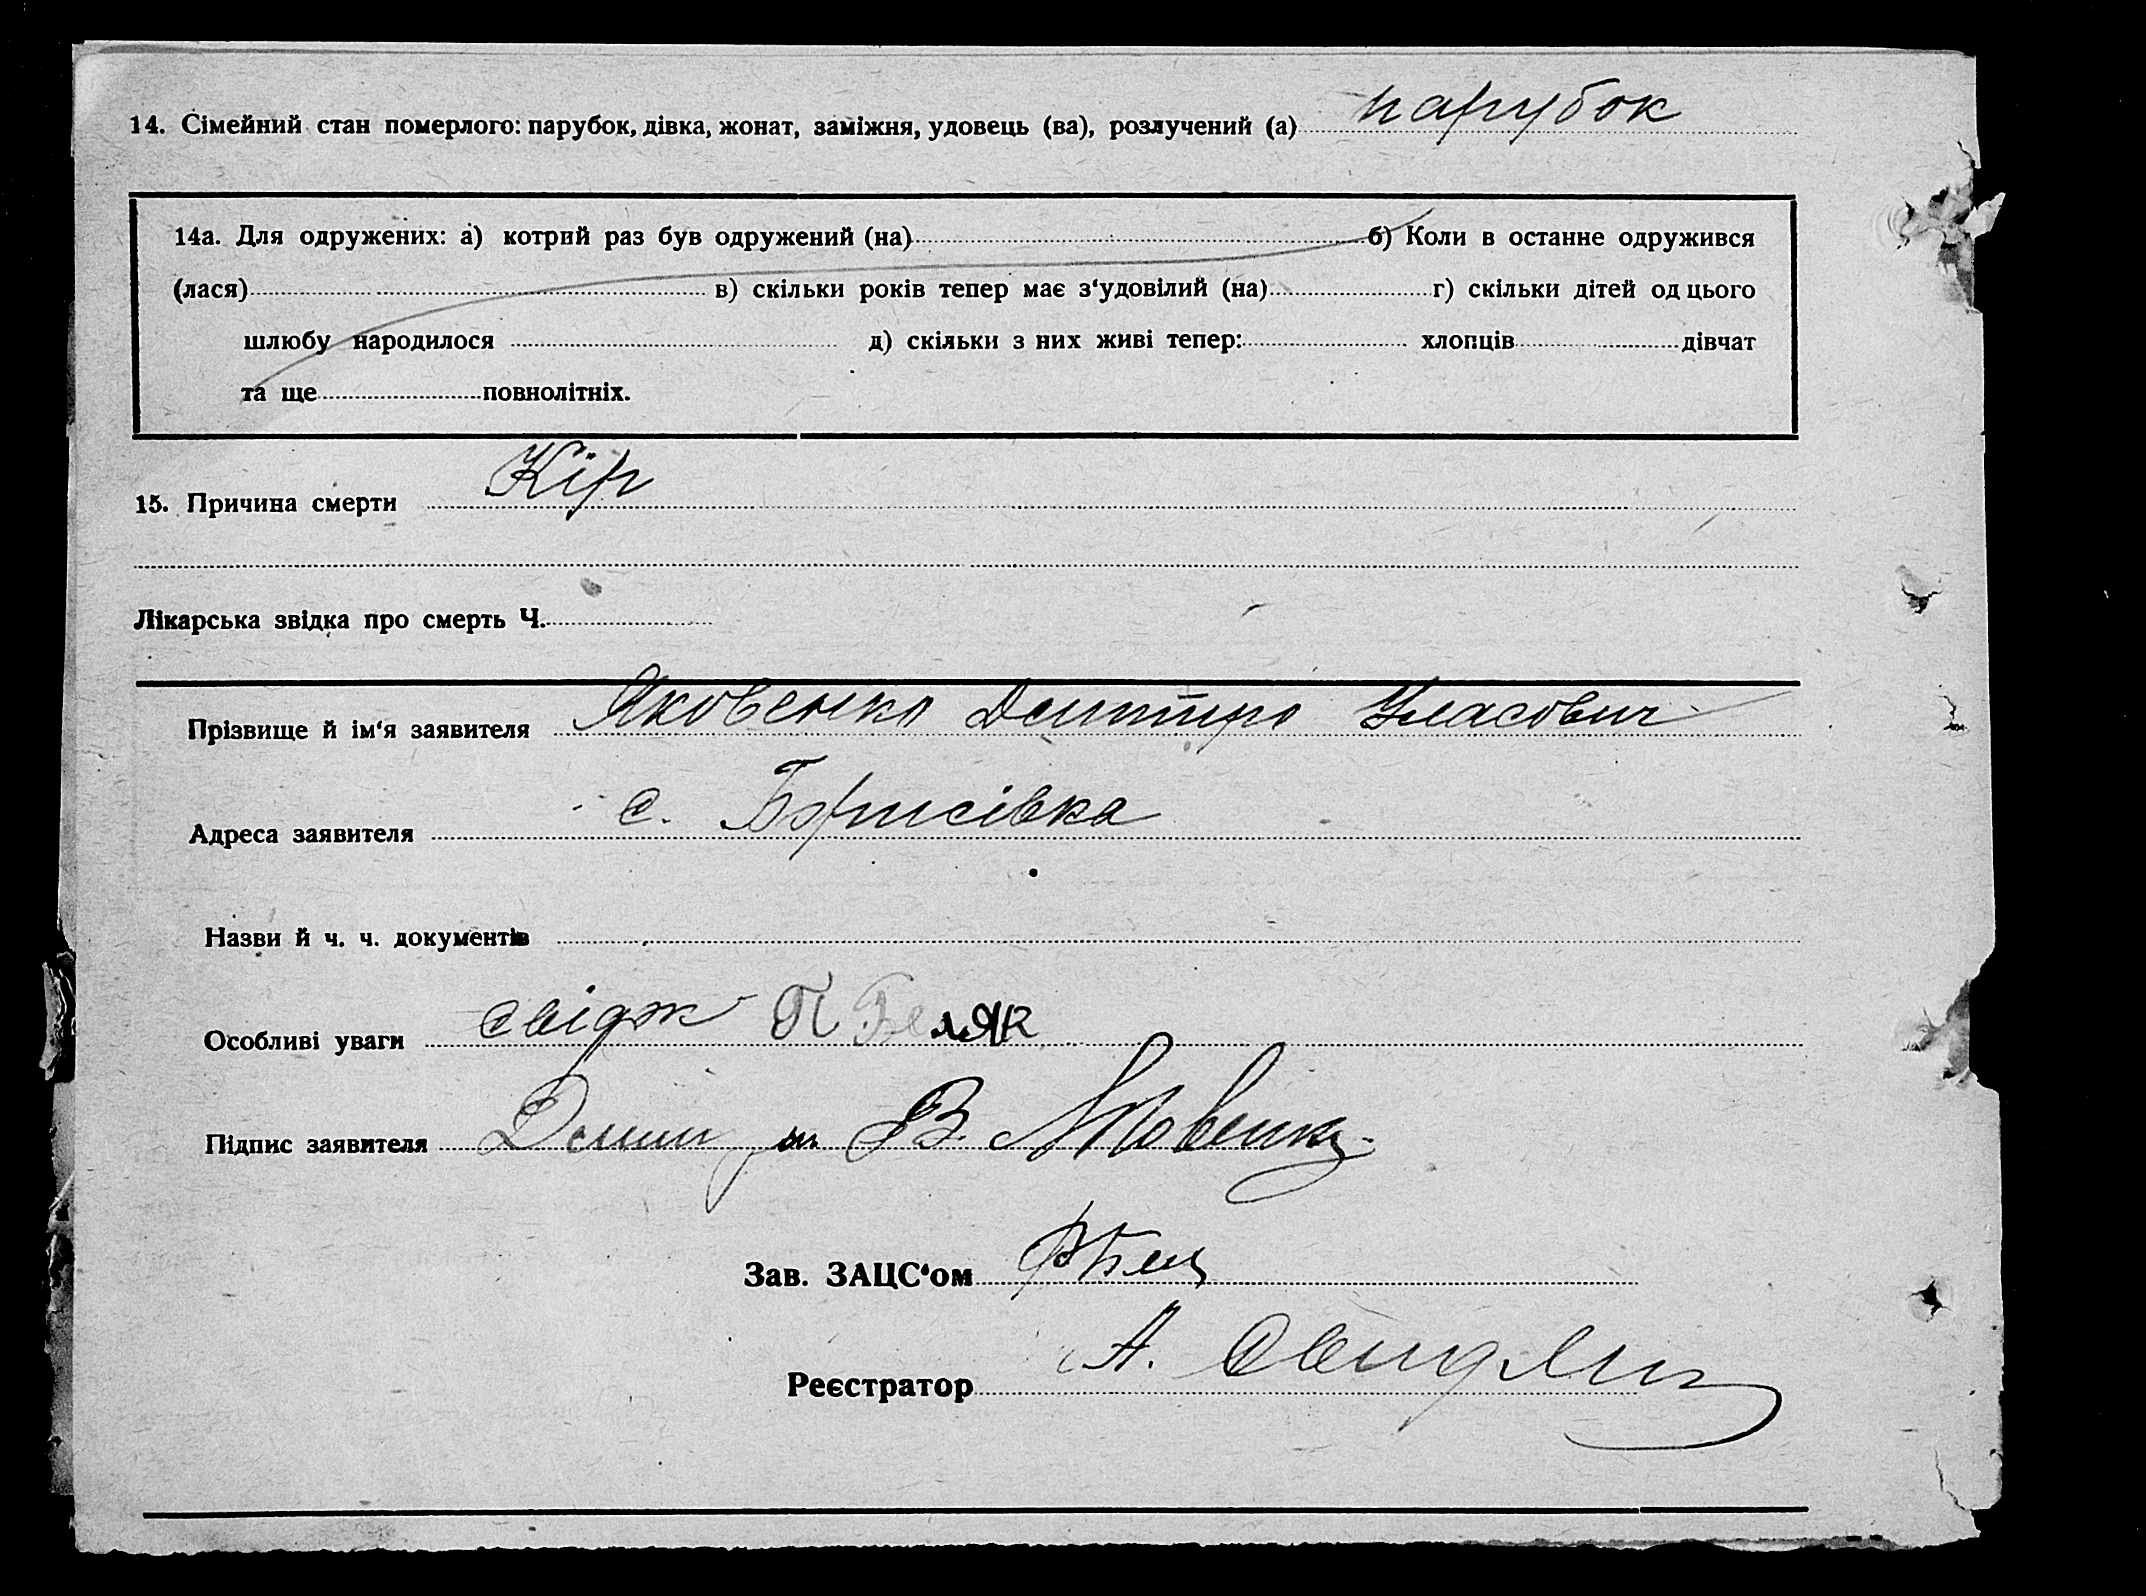 14. Сімейний стан померлого: парубок, дівка, жонат, заміжня, удовець (ва), розлучений (а) парубок
14а. Для одружених: а) котрий раз був одружений (на) б) Коли в останне одружився
(лася) в) скільки років тепер має з‘удовілий (на) г) скільки дітей од цього
шлюбу народилося д) скільки з них живі тепер: хлопців дівчат
та ще повнолітніх.
15. Причина смерти Кір
Лікарська звідка про смерть Ч.
Прізвище й ім‘я заявителя Яковенко Дмитро Уласович
Адреса заявителя с. Борисівка
Назви й ч. ч. документів
Особливі уваги свідж П
Підпис заявителя Дмитро В Яковенко
Зав. ЗАЦС‘ом
Реєстратор А.